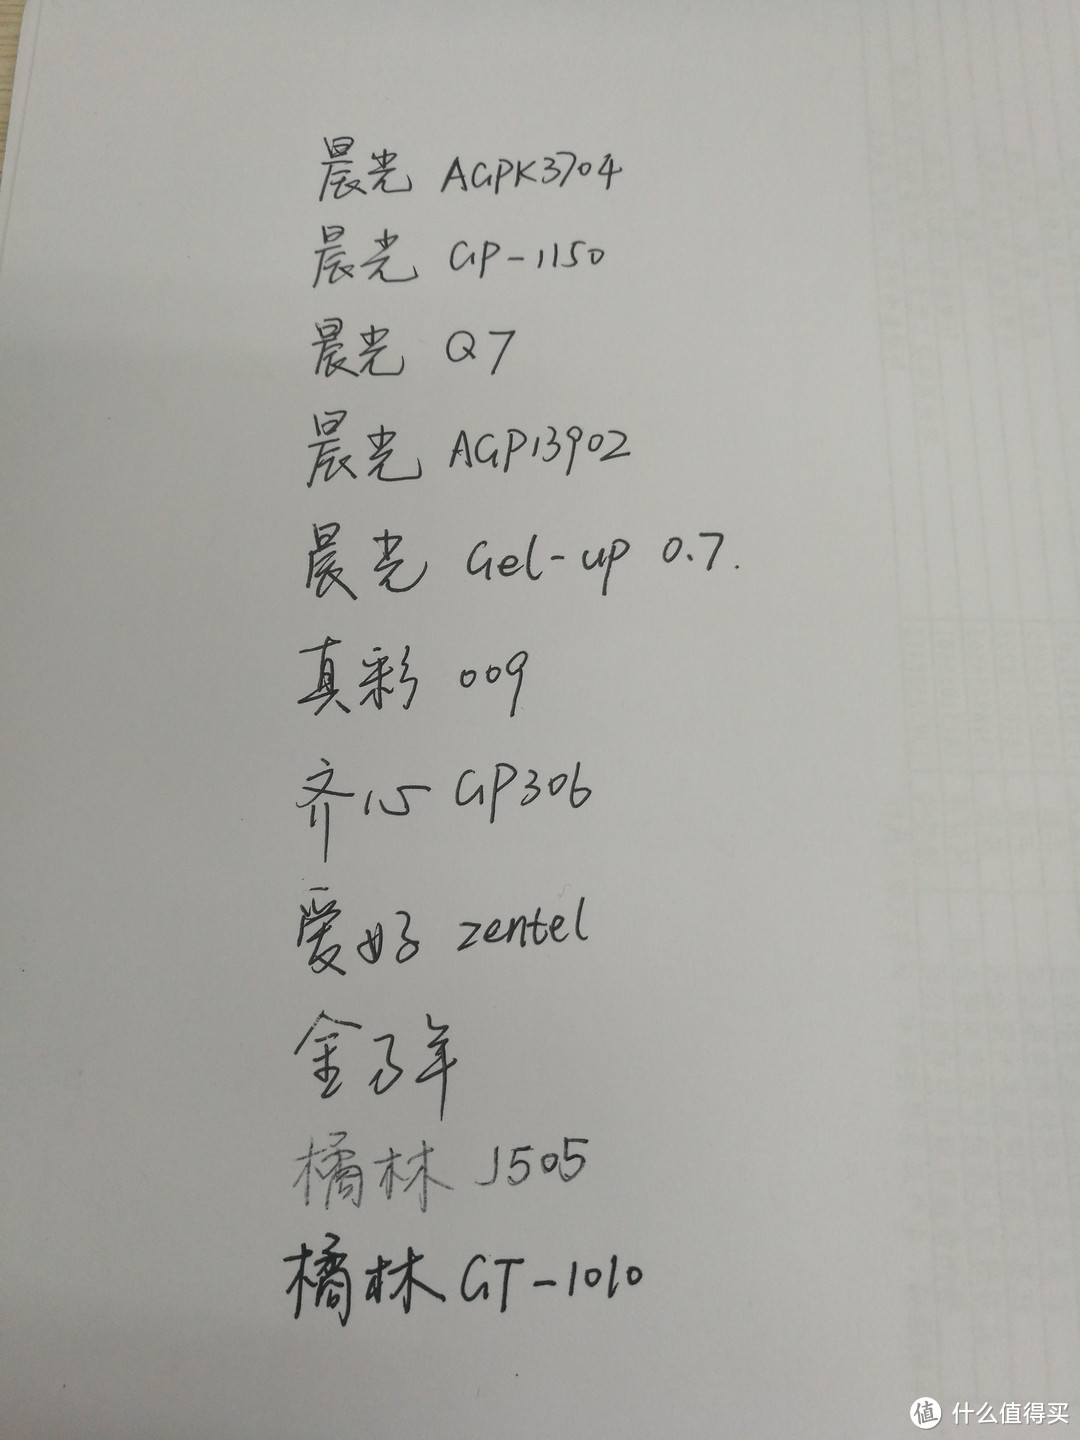 晨光 AGPK3704
晨光 GP-1150
晨光 Q7
晨光 AGP13902
晨光 Gel-up 0.7.
真彩 009
齐心 GP306
爱好 zentel
金万年
橘林 J505
橘林 GT-1010
值 什么值得买